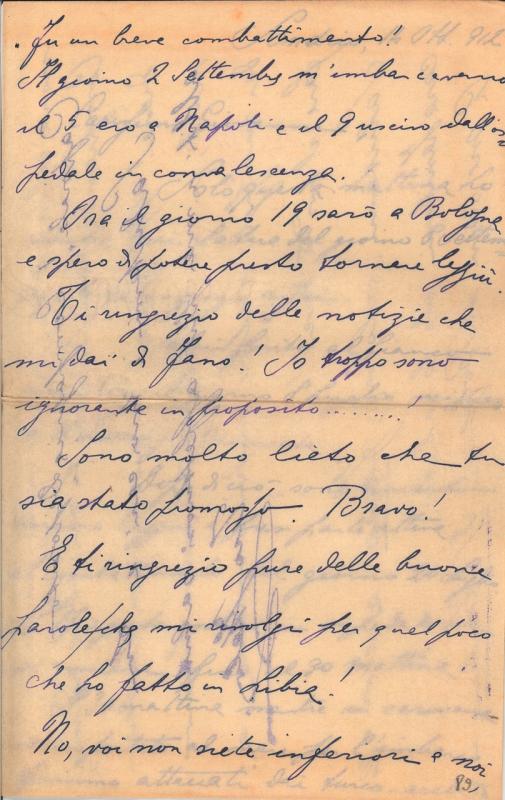 Fu un breve combattimento!
Il giorno 2 Settembre m'imbarcavano
il 5 ero a Napoli e il 9 uscivo dall'os=
pedale in convalescenza.
Ora il giorno 19 sarò a Bologna
e spero di potere presto tornare laggiù.
Ti ringrazio delle notizie che
mi dai di Fano! Io troppo sono
ignorante in proposito........!
Sono molto lieto che tu
sia stato promosso. Bravo!
E ti ringrazio pure delle buone
parole che mi rivolgi per quel poco
che ho fatto in Libia!
No, voi non siete inferiori a noi
89